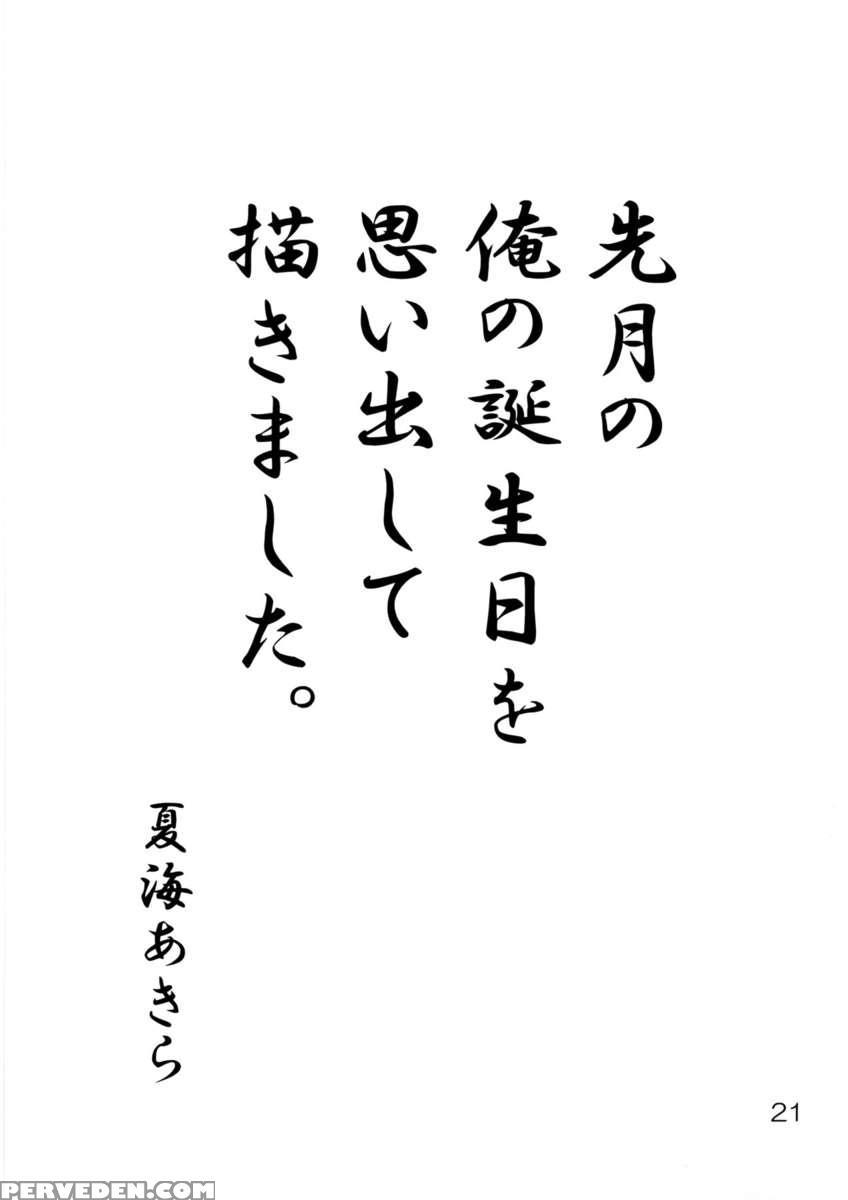 先月の
俺の誕生日を
思い出して
描きました。
夏海あきら
21
PERVEDEN.COM